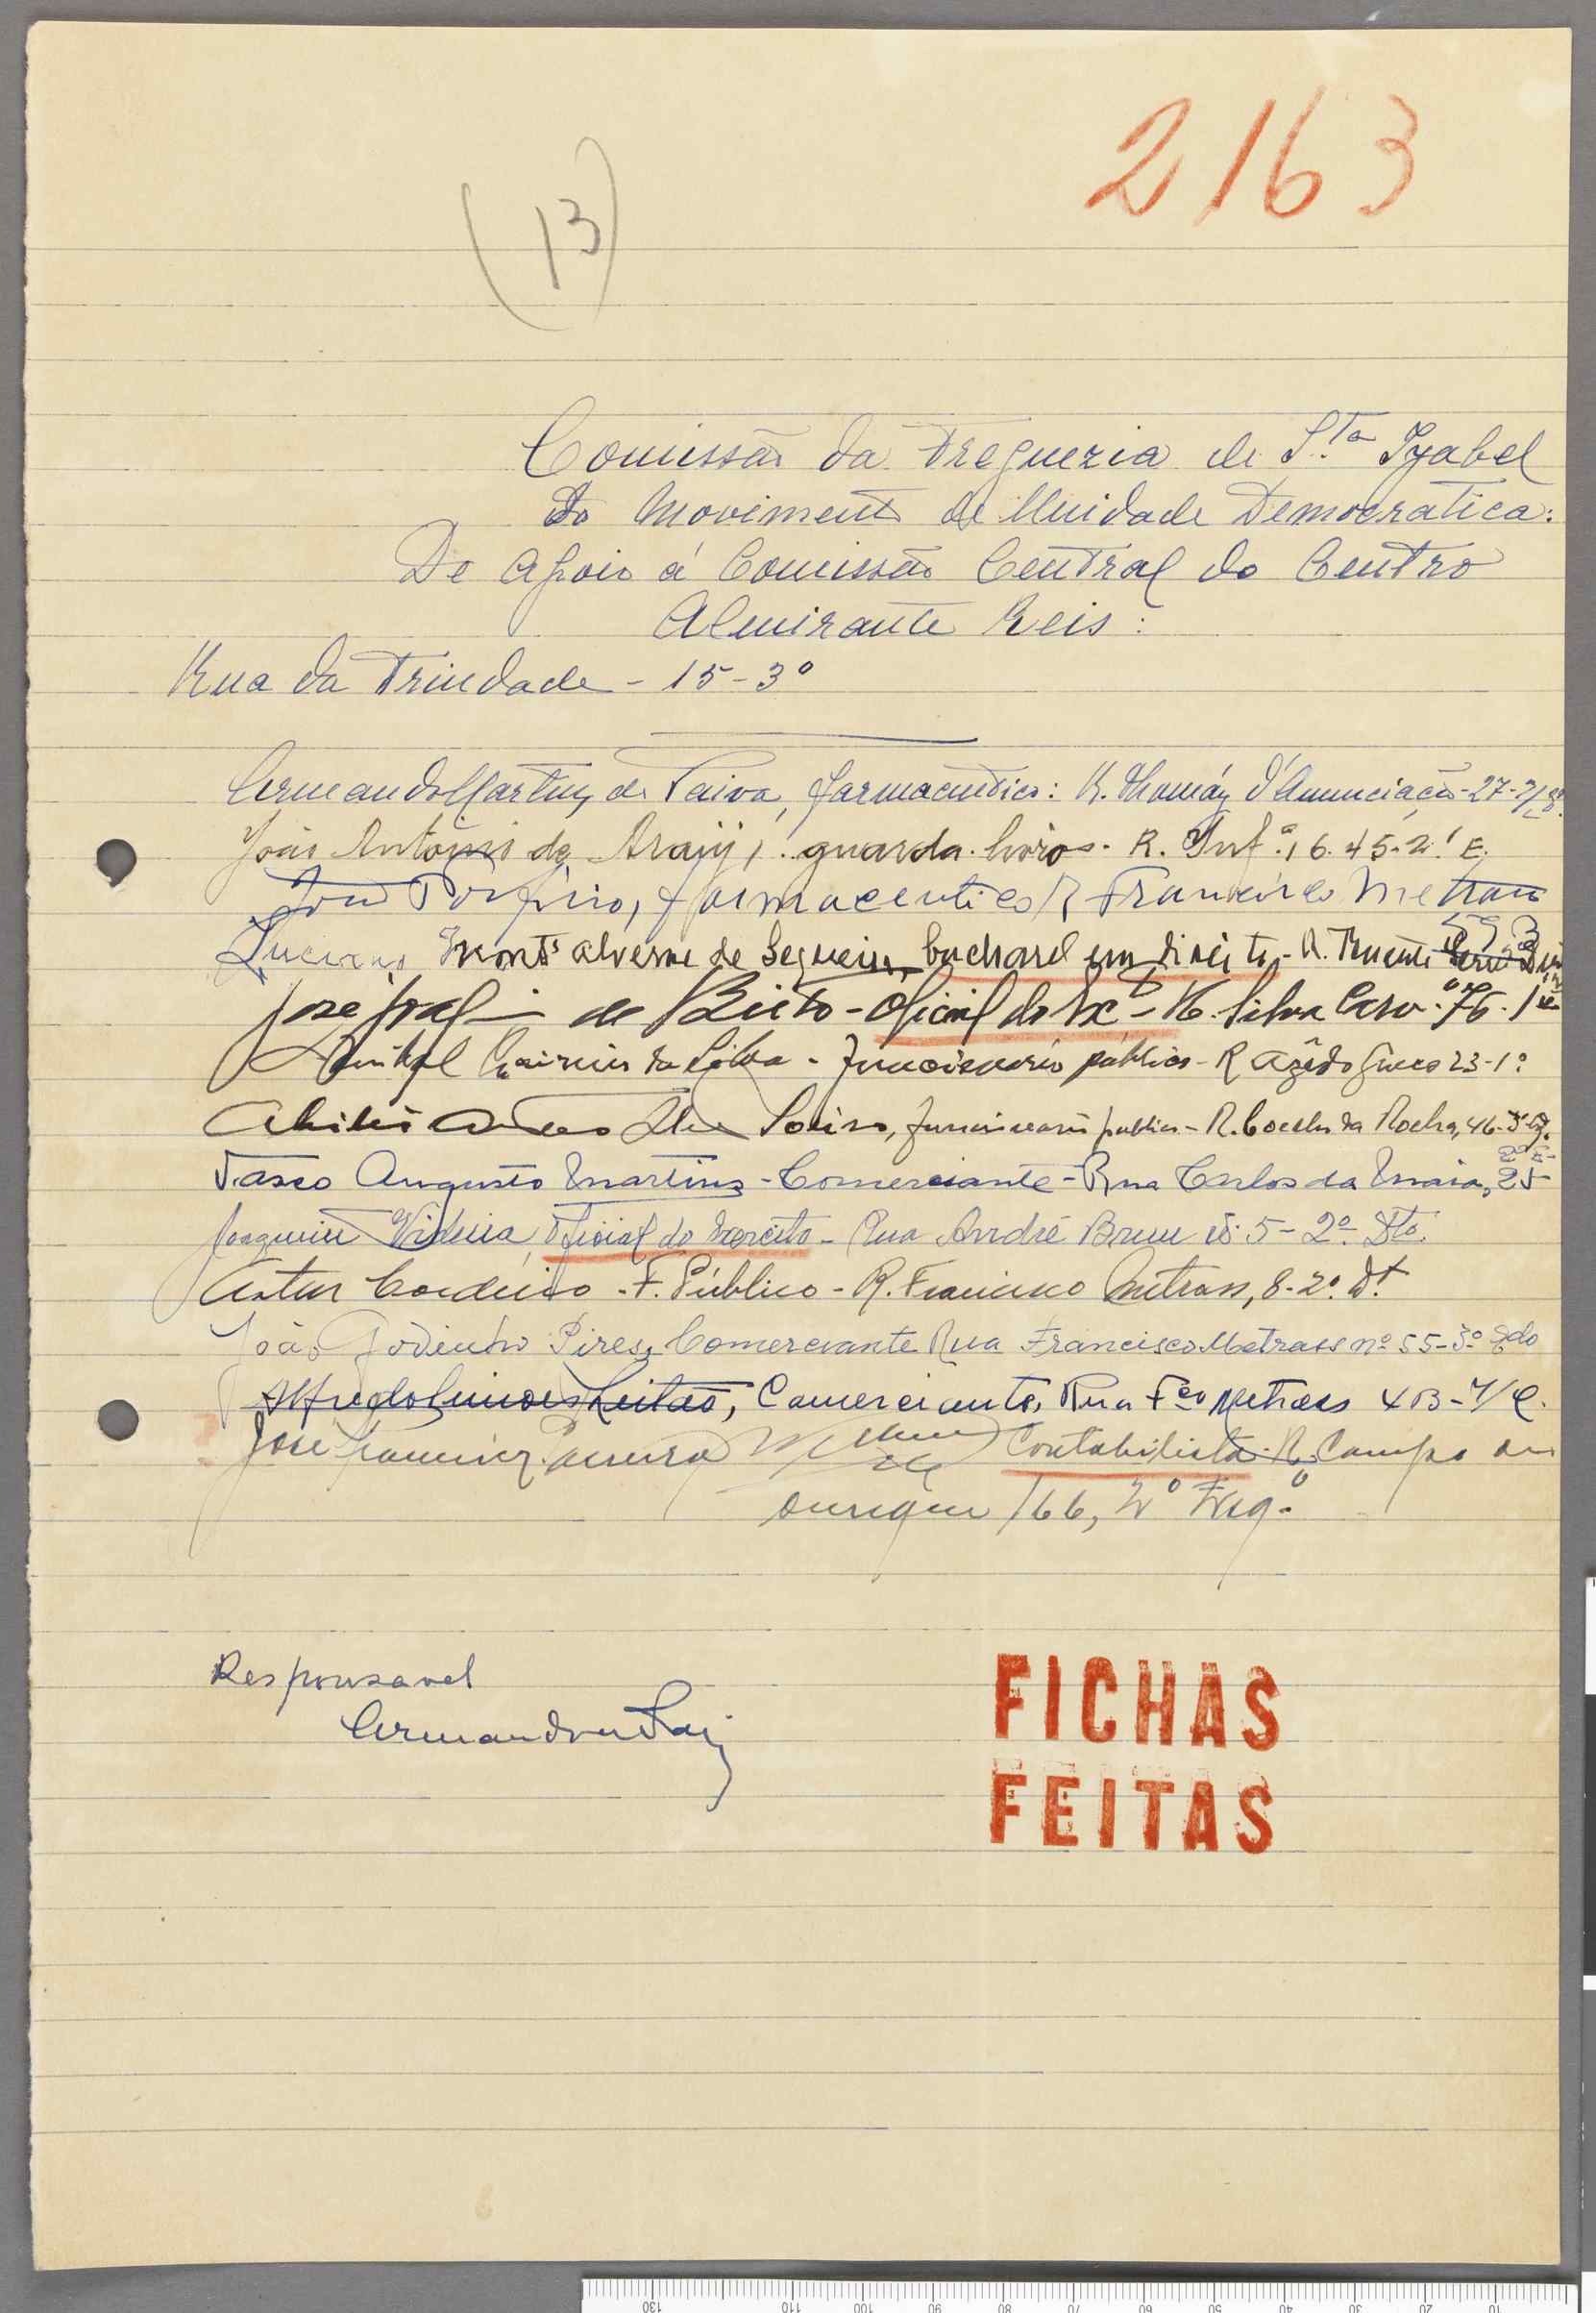 2163
(13)
Comissão da Freguezia de S.ta Izabel
do Movimento de Unidade Democratica:
De Apoio á Comissão Central do Centro
Almirante Reis:
Rua da Trindade - 15 - 3º
Armando Martins de Paiva, farmaceutico: R. Thomáz d'Anunciação - 27 -
João António de Araújo, guarda-livros - R. Inf.ª 16. 45-2.º E.
Porfirio, farmaceutico R Francisco Metrass
55 3
Luciano Mont'alverne de Sequeira, bacharel em direito - R. Tenente
José de Brito - Oficial do Ex.to - R. Silva Carv.º 76. 1º
da Silva - Funcionario público - R Azêdo Gneco 23-1º
Sousa, funcionario publico - R. Coelho da Rocha, 46-3º
Vasco Augusto Martins - Comerciante - Rua Carlos da Maia, 25
Joaquim Oficial do Exercito - Rua André Brun nº 5 - 2º Dto.
Artur Cordeiro - F. Público - R. Francisco Metrass, 8-2º D.t
João Godinho Pires, Comerciante Rua Francisco Metrass nº 55-3º Edo
Alfredo Simões Leitão, Comerciante, Rua Fco Metrass 4B - r/c.
José Pereira Contabilista - R. Campo de
Ourique 166, 2º Esq.º
Responsavel
Armando M Paiva
FICHAS
FEITAS
130 110 100 90 80 70 60 50 40 30 20 10